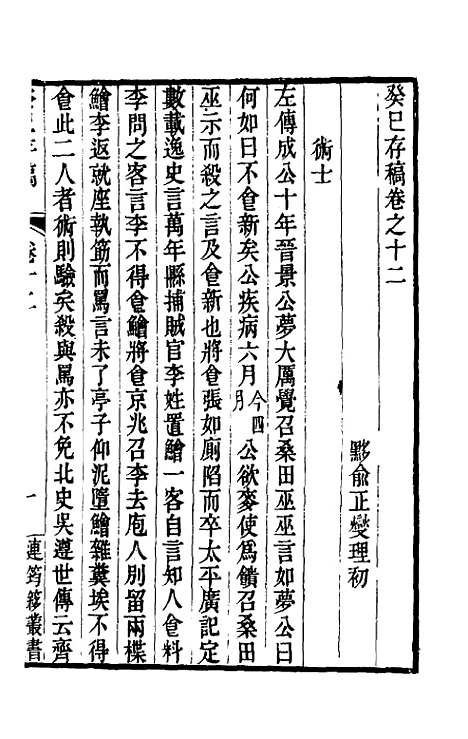 癸巳存稿卷之十二
黟俞正燮理初
術士
左傳成公十年晉景公夢大厲覺召桑田巫巫言如夢公曰
何如曰不㑹新矣公疾病六月今四月公欲麥使爲饋召桑田
巫示而殺之言及㑹新也將㑹張如廁陷而卒太平廣記定
數載逸史言萬年縣捕賊官李姓置鱠一客自言知人㑹料
李問之客言李不得㑹鱠將㑹京兆召李去庖人別留兩楪
鱠李返就座執筯而罵言未了亭子仰泥墮鱠雜糞埃不得
㑹此二人者術則驗矣殺與罵亦不免北史吳遵世傳云齊
卷十二
一
連筠簃叢書